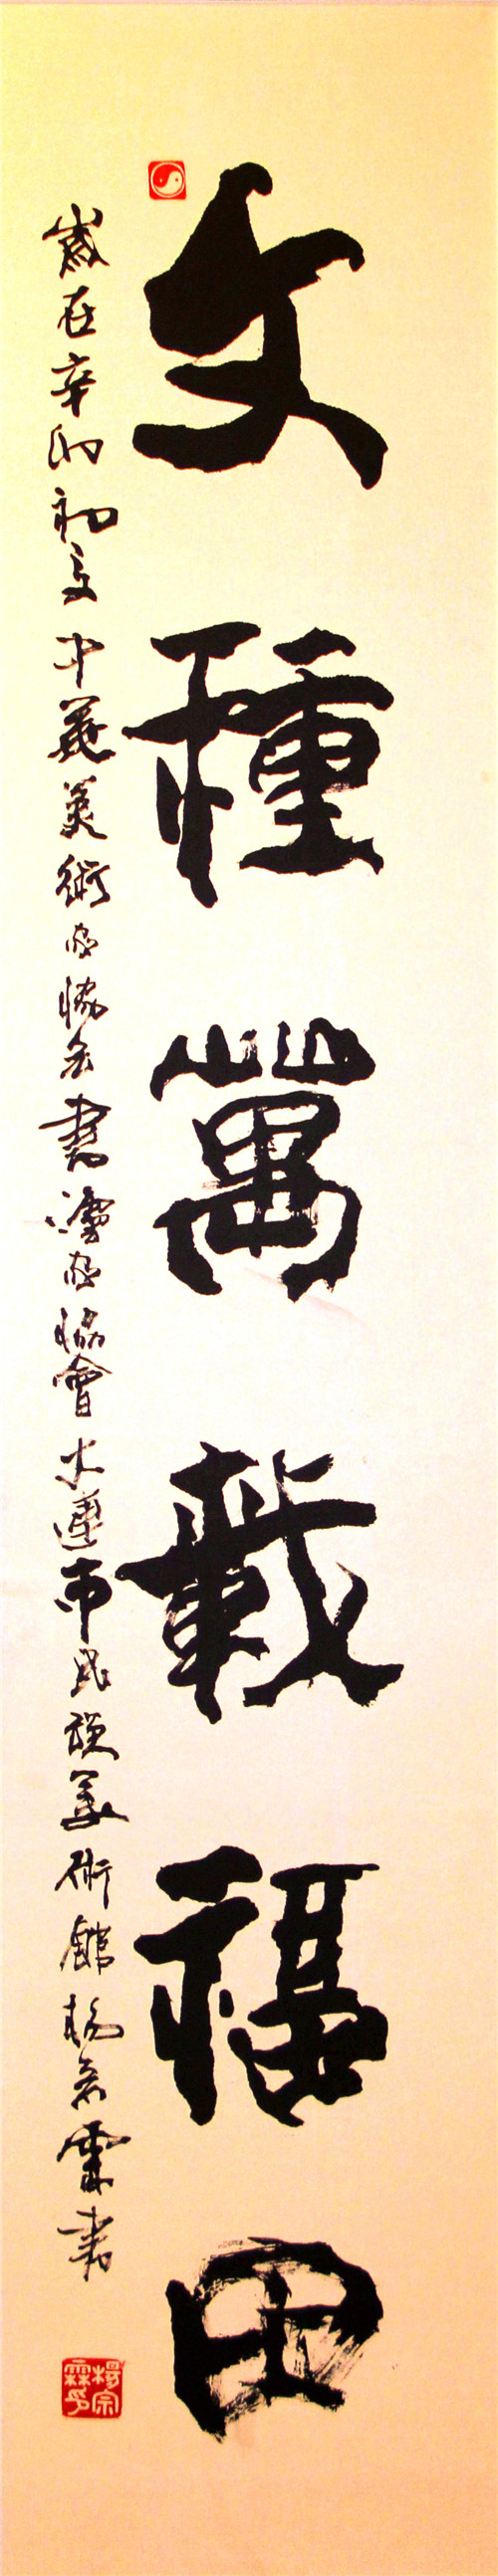 文種萬載福田
歲在辛卯初夏中華美術家協会書灋家協會大連市民族美術館楊宗霖書
楊宗霖印